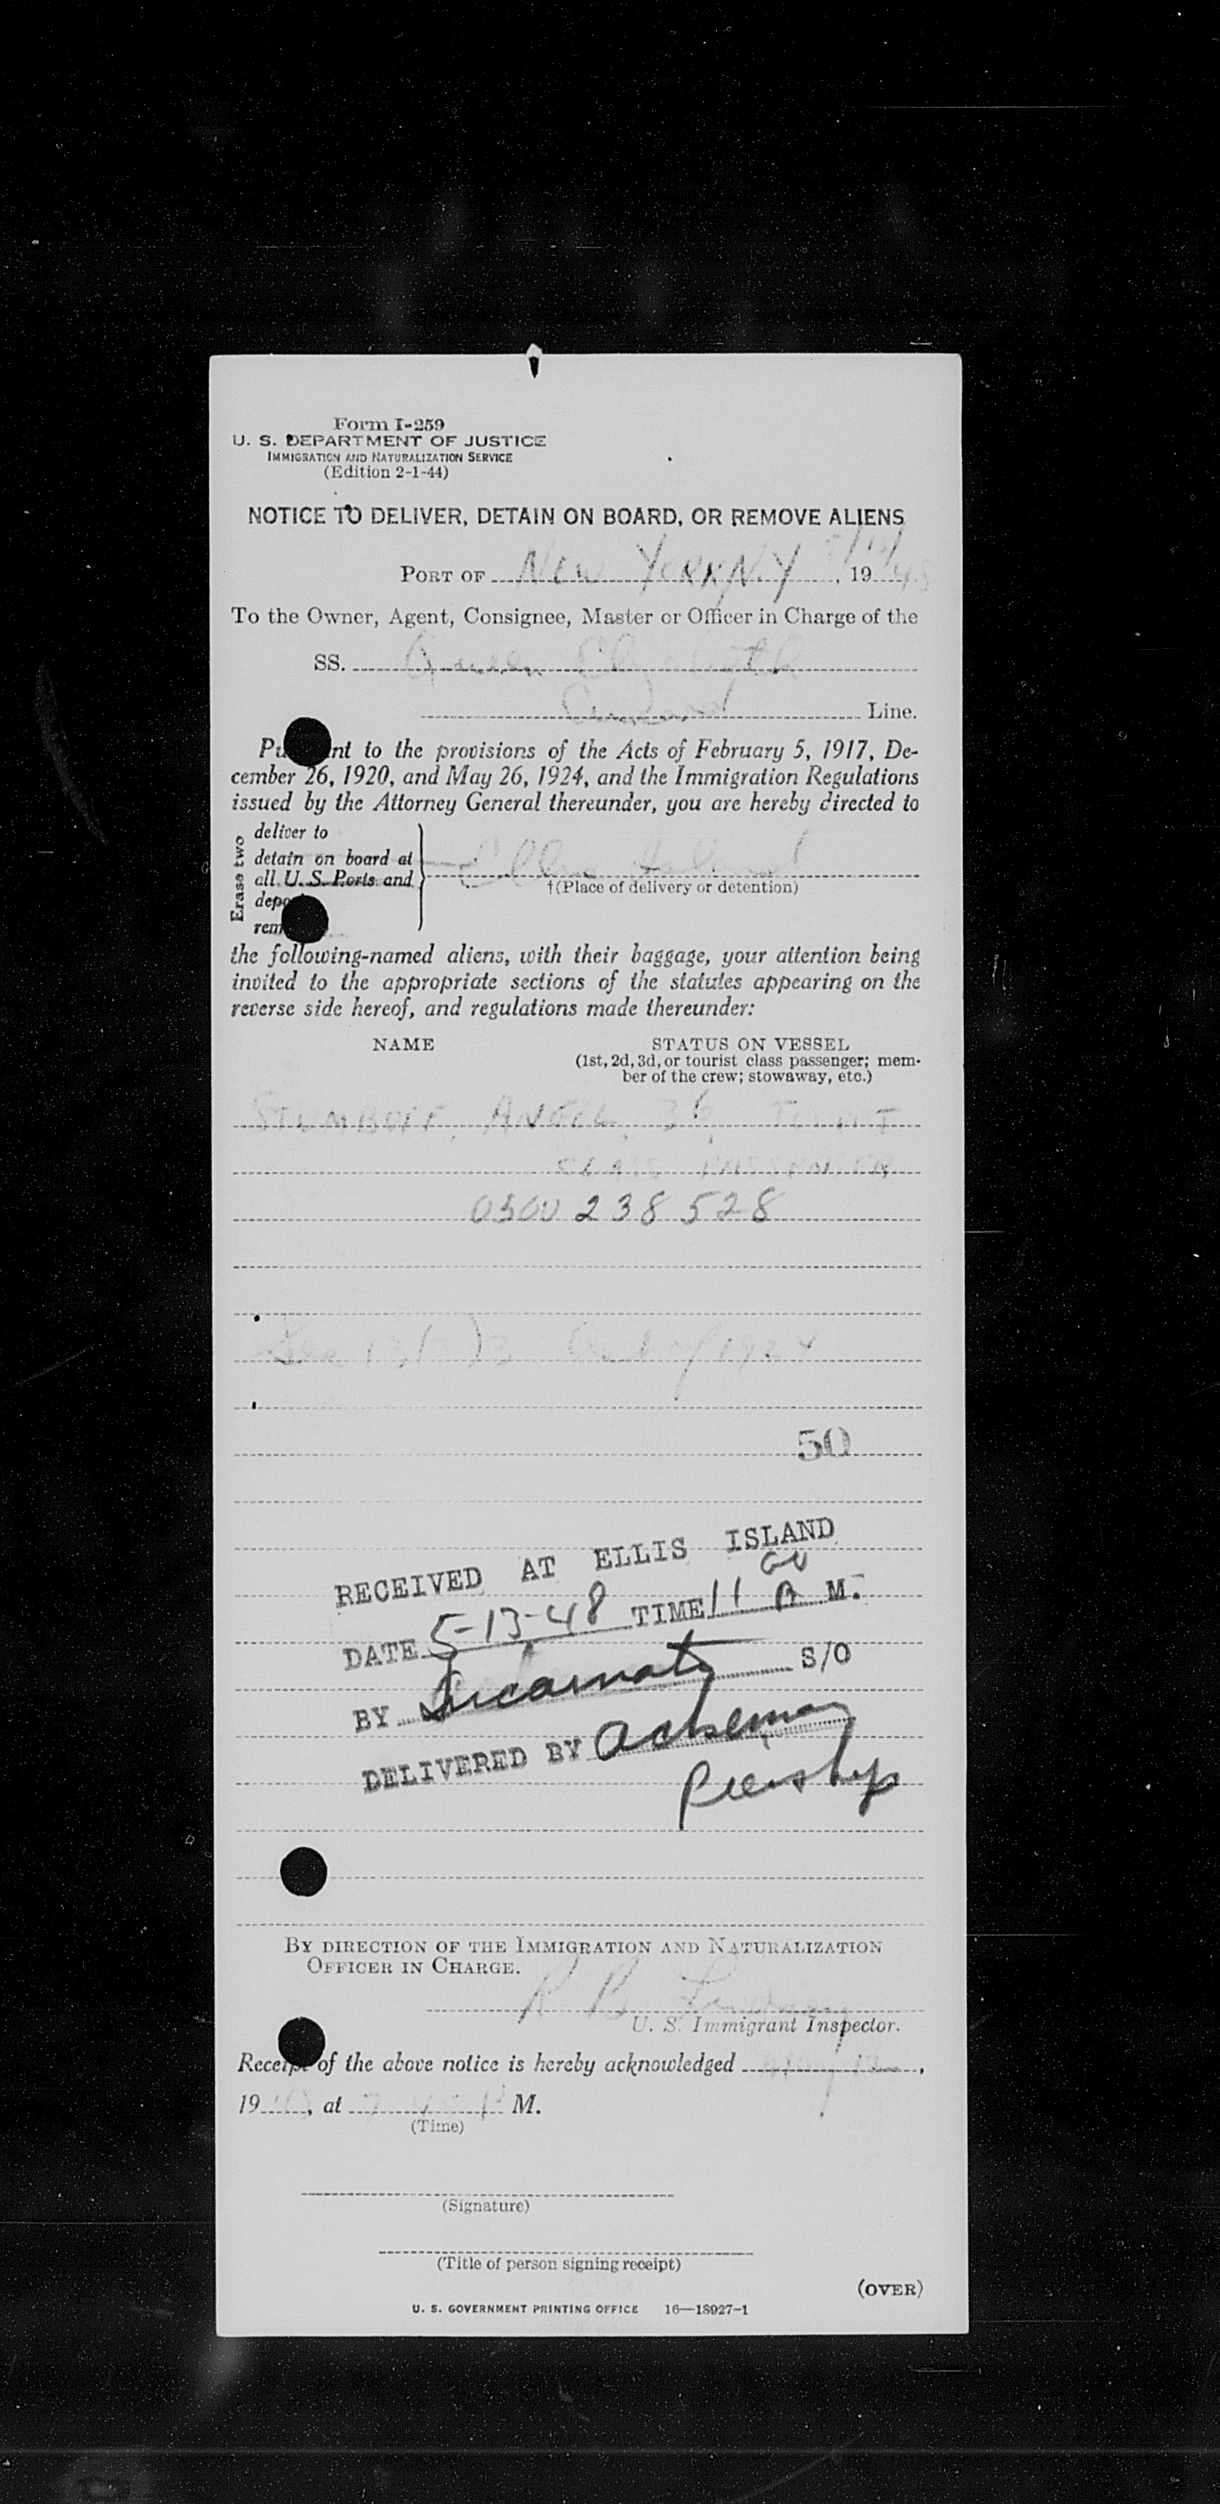 Form I-259
U. S. DEPARTMENT OF JUSTICE
IMMIGRATION AND NATURALIZATION SERVICE
(Edition 2-1-44)
NOTICE TO DELIVER, DETAIN ON BOARD, OR REMOVE ALIENS
PORT OF New York N.Y , 19 48
To the Owner, Agent, Consignee, Master or Officer in Charge of the
SS. Queen Elizabeth
Cunard Line.
Pu nt to the provisions of the Acts of February 5, 1917, De-
cember 26, 1920, and May 26, 1924, and the Immigration Regulations
issued by the Attorney General thereunder, you are hereby directed to
Erase two
deliver to
detain on board at
all U. S. Ports and
depo
rem
Ellis Island
†(Place of delivery or detention)
the following-named aliens, with their baggage, your attention being
invited to the appropriate sections of the statutes appearing on the
reverse side hereof, and regulations made thereunder:
NAME STATUS ON VESSEL
(1st, 2d, 3d, or tourist class passenger; mem-
ber of the crew; stowaway, etc.)
STUMBOFF, ANGEL, 36,
CLASS PASSENGER
0300 238 528
Sec 13 Act of 1924
50
RECEIVED AT ELLIS ISLAND
DATE 5-13-48 TIME 11 A M.
BY S/O
DELIVERED BY
BY DIRECTION OF THE IMMIGRATION AND NATURALIZATION
OFFICER IN CHARGE.
R B
U. S. Immigrant Inspector.
Receipt of the above notice is hereby acknowledged May ,
19 , at P M.
(Time)
(Signature)
(Title of person signing receipt)
(OVER)
U. S. GOVERNMENT PRINTING OFFICE 16—18927-1